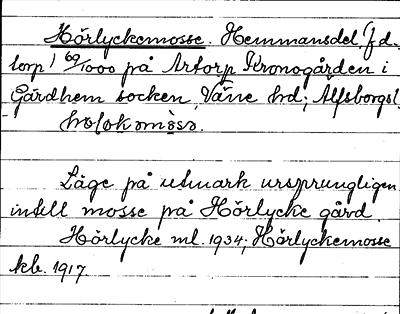 Hörlyckemosse. Hemmansdel (f.d.
torp) 69/1000 på Artorp Kronogården i
Gärdhem socken, Väne hd; Älfsborgs l.
Läge på utmark ursprungligen
intill mosse på Hörlycke gärd.
Hörlycke ml. 1934; Hörlyckemosse
kb. 1917.